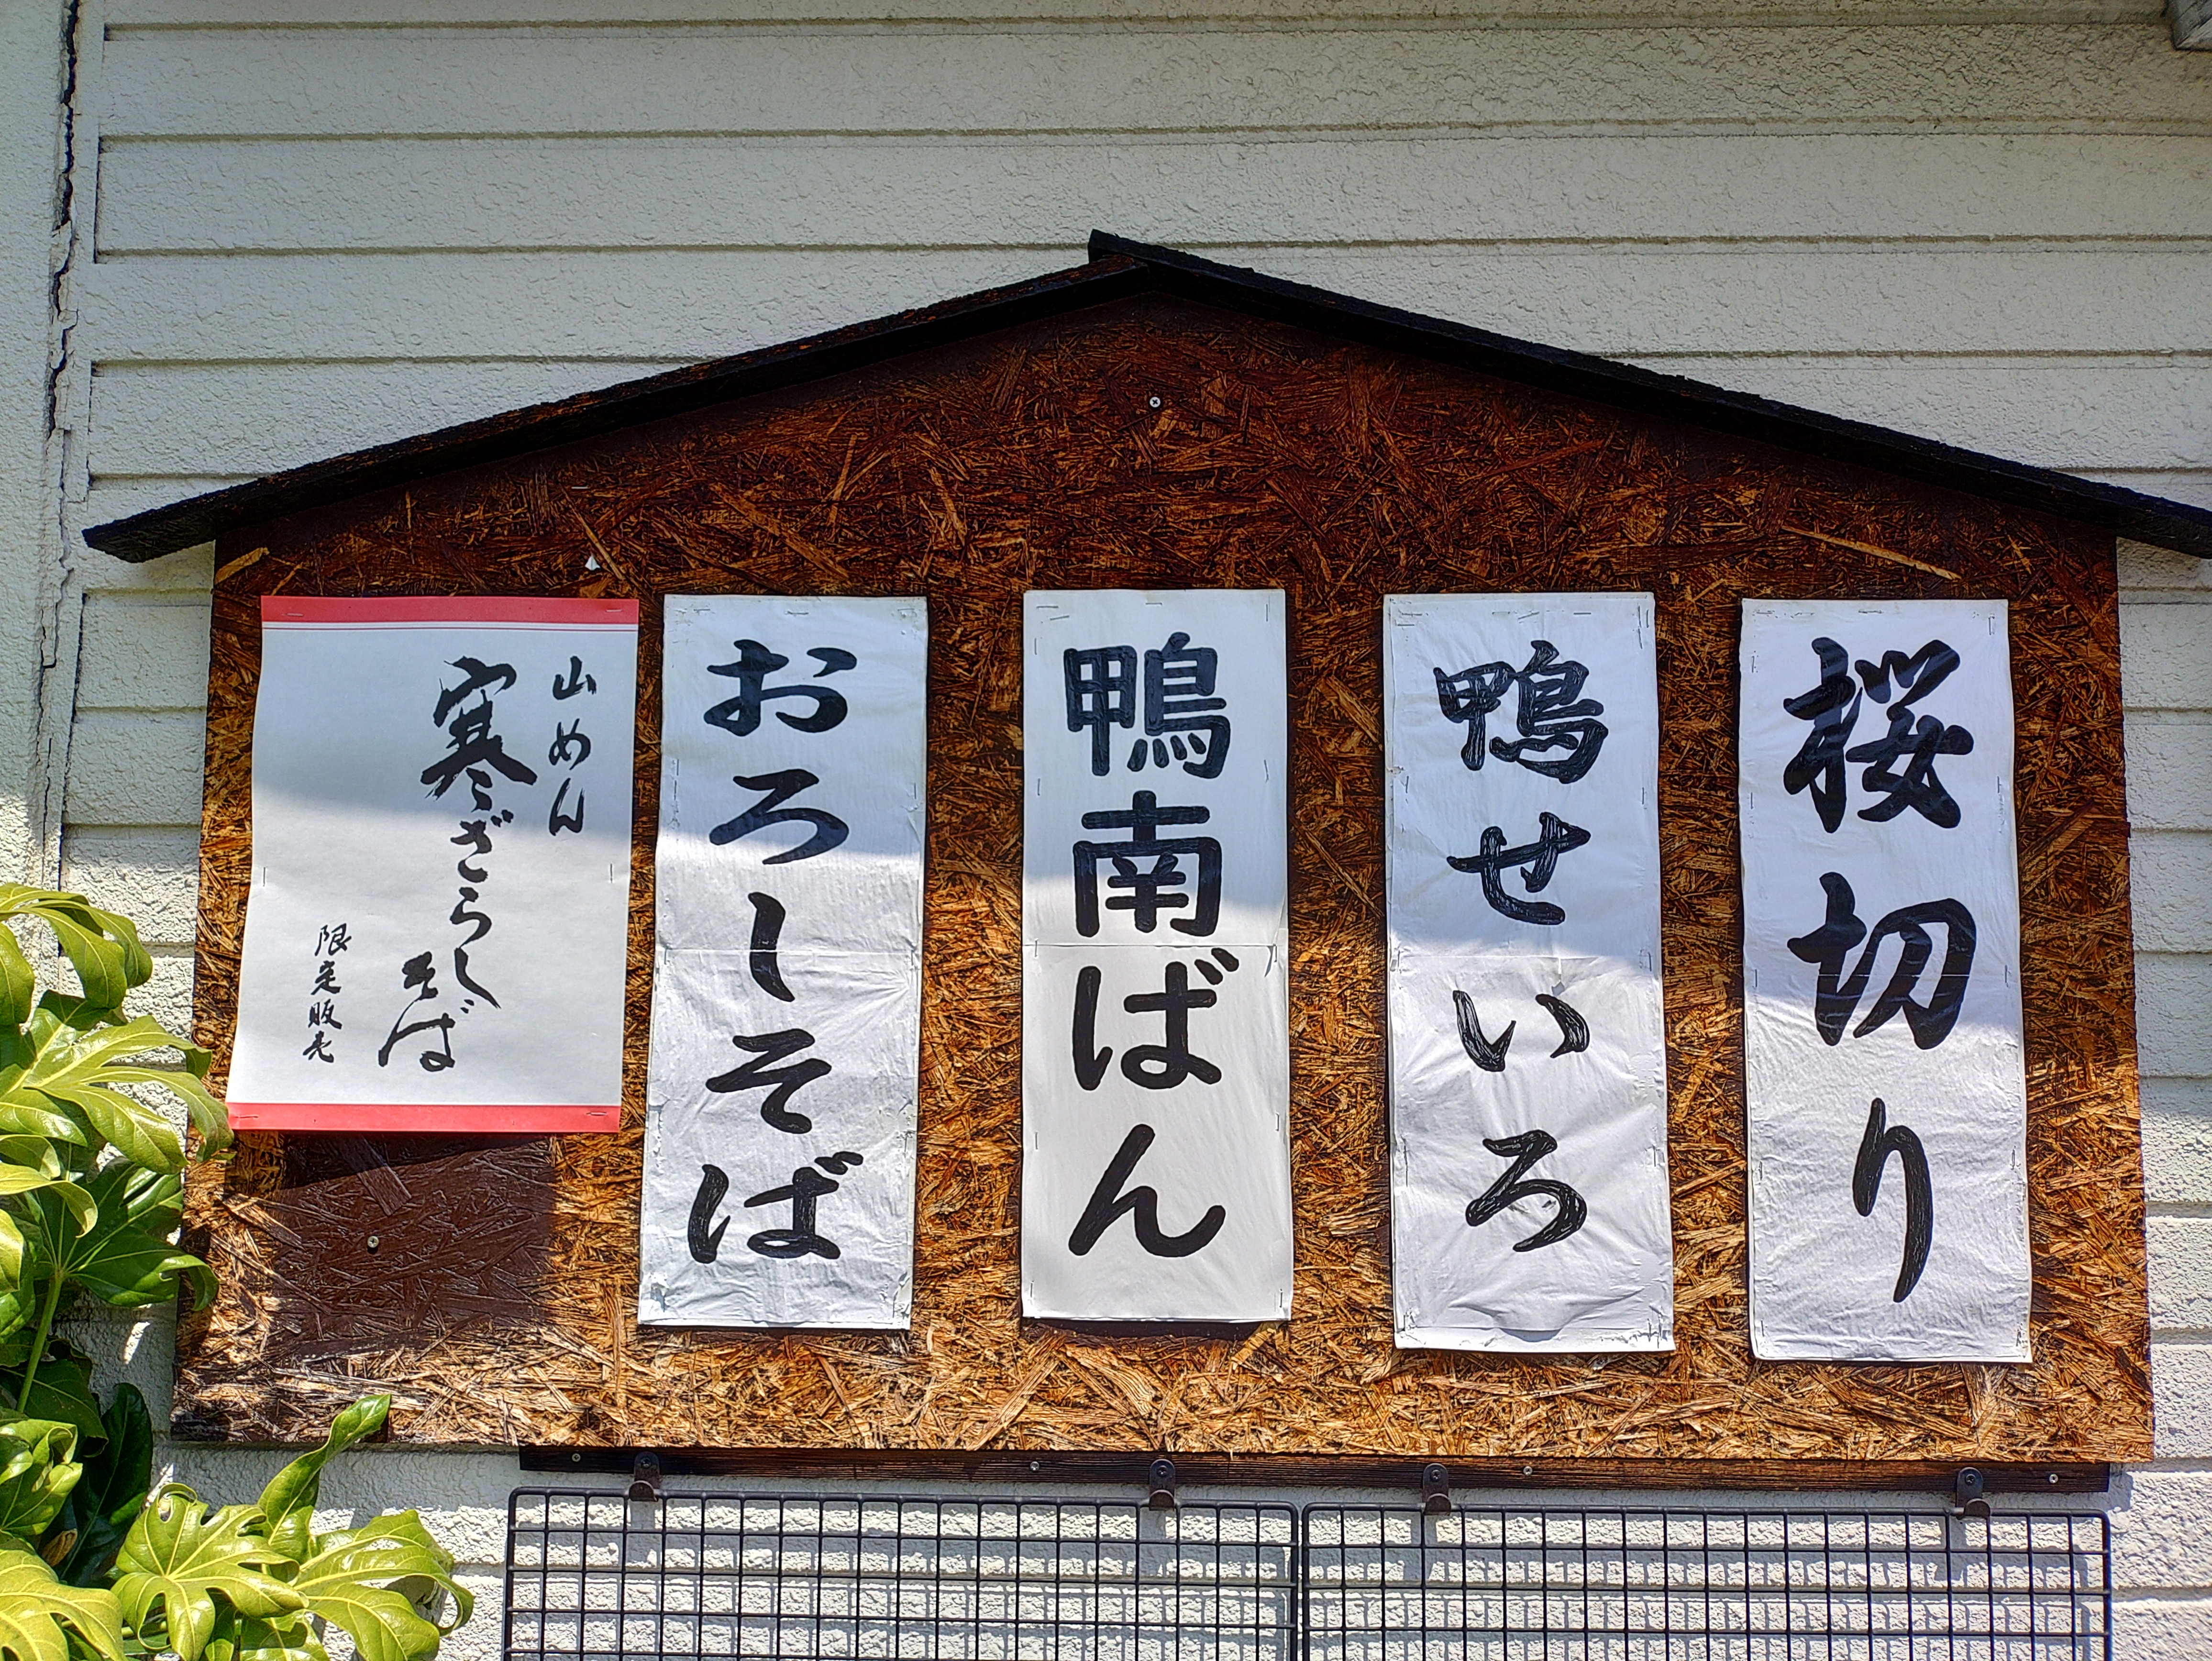 桜切り
鴨せいろ
鴨南ばん
おろしそば
山めん
寒ざらし
そば
限定販売